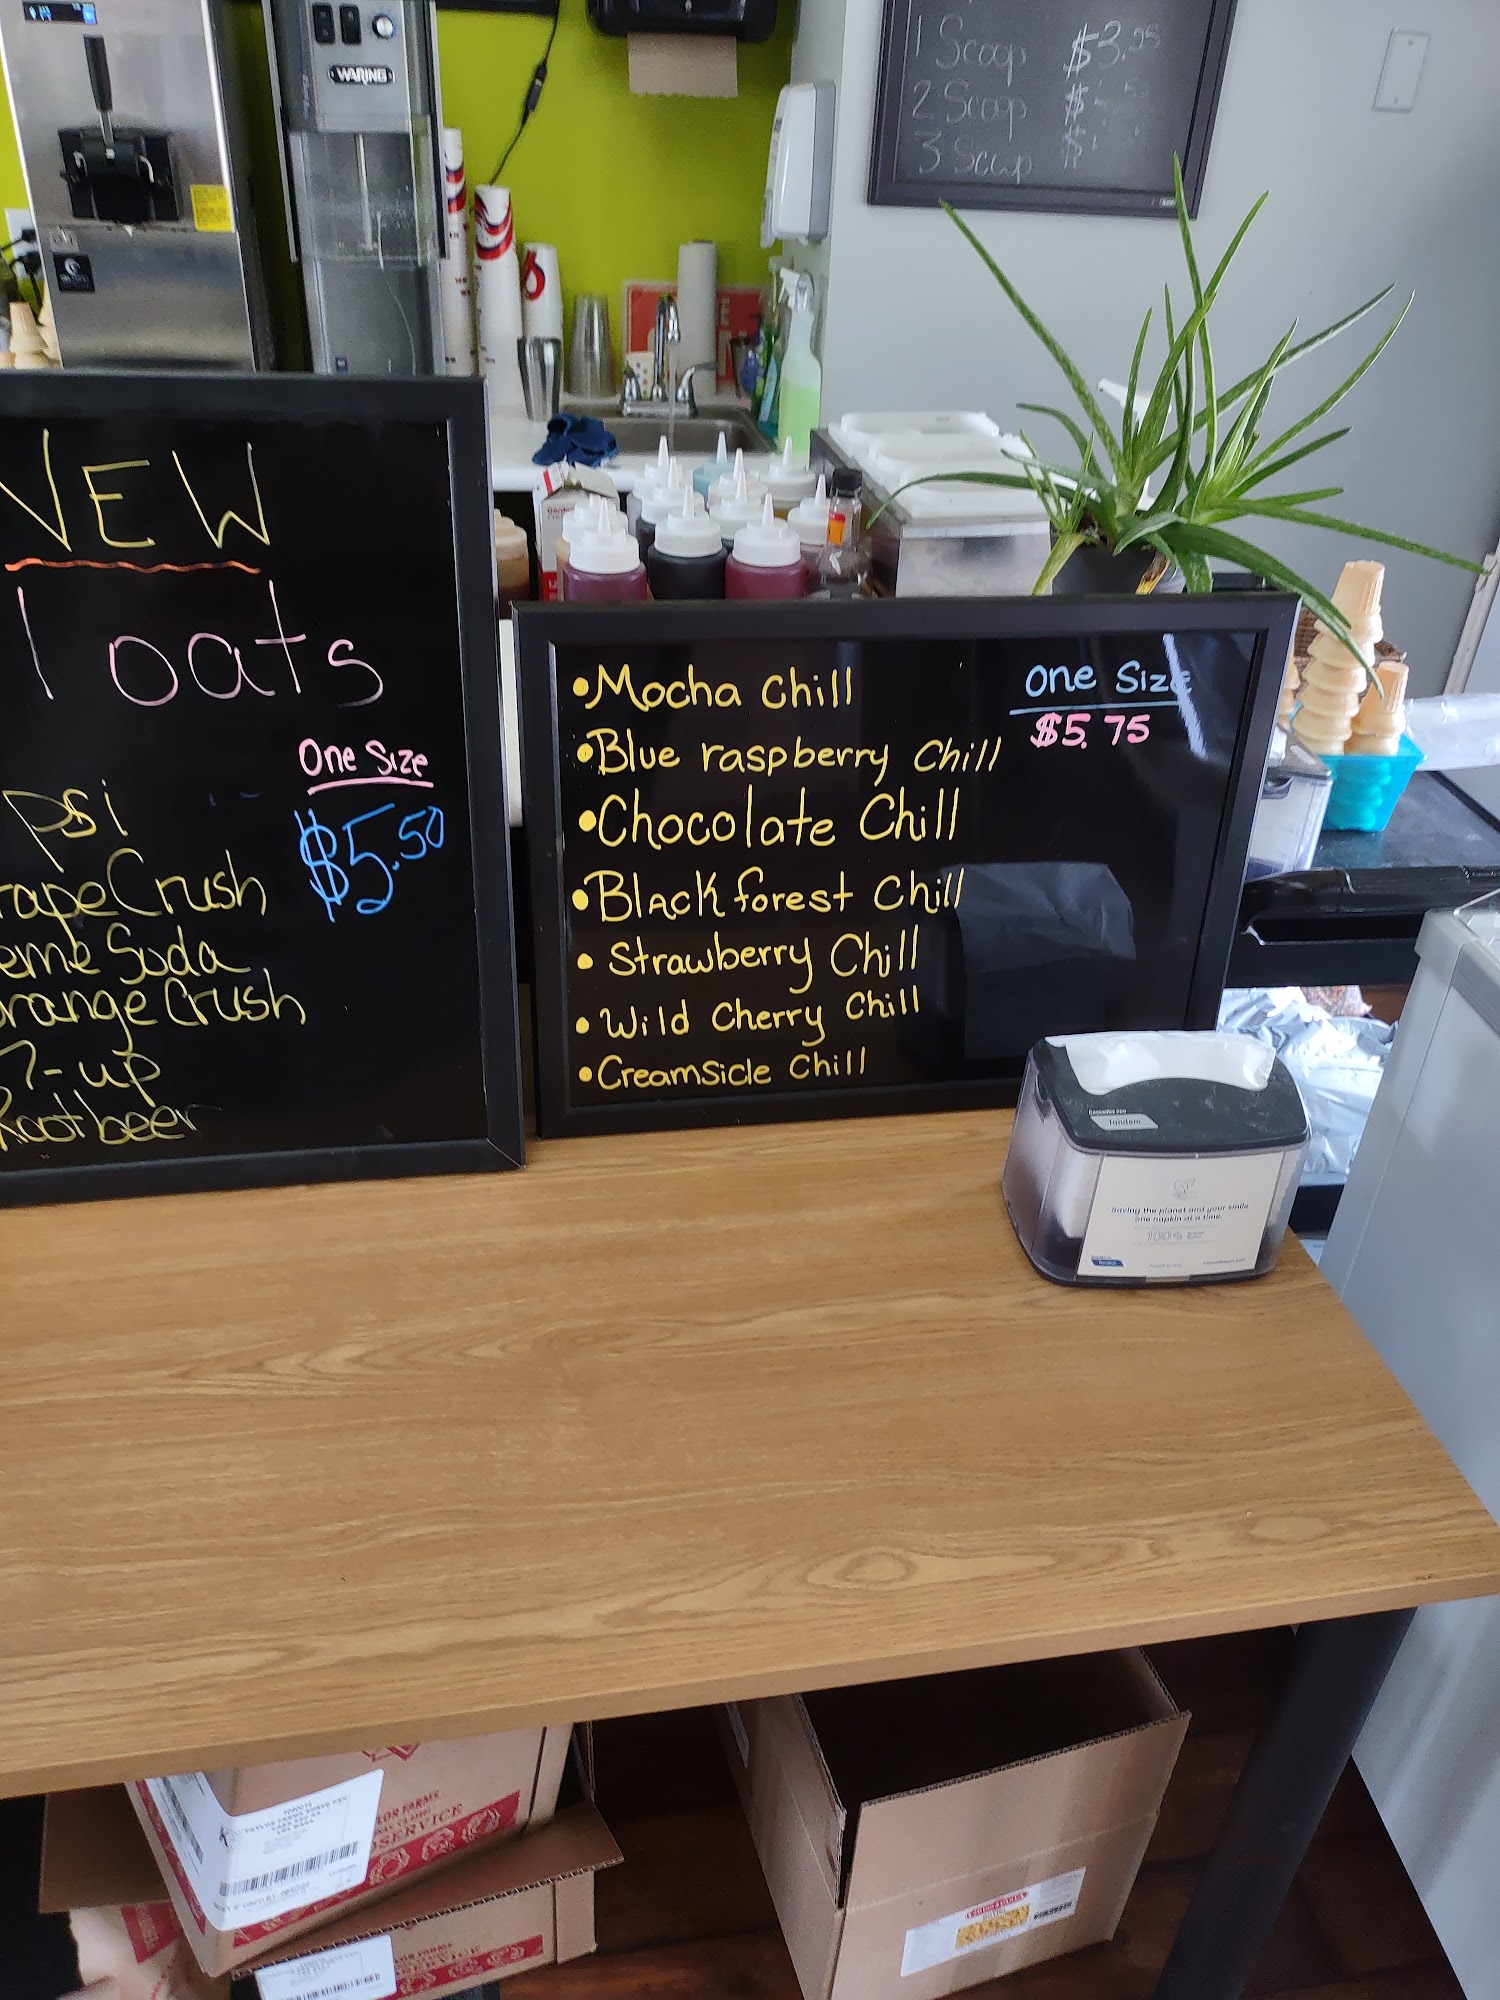 WARING
1 Scoop $3.
2 Scoop $
3 Scoop $
NEW
loats
One Size
$5.50
psi
rapeCrush
eme Soda
rangeCrush
7-up
Rootbeer
•Mocha Chill
•Blue raspberry Chill
•Chocolate Chill
•Black forest Chill
• Strawberry Chill
• Wild Cherry Chill
•Creamsicle Chill
One Size
$5.75
Tandem
Saving the planet and your smile
one napkin at a time.
100%
OR FARMS
SERVICE
OR FARMS